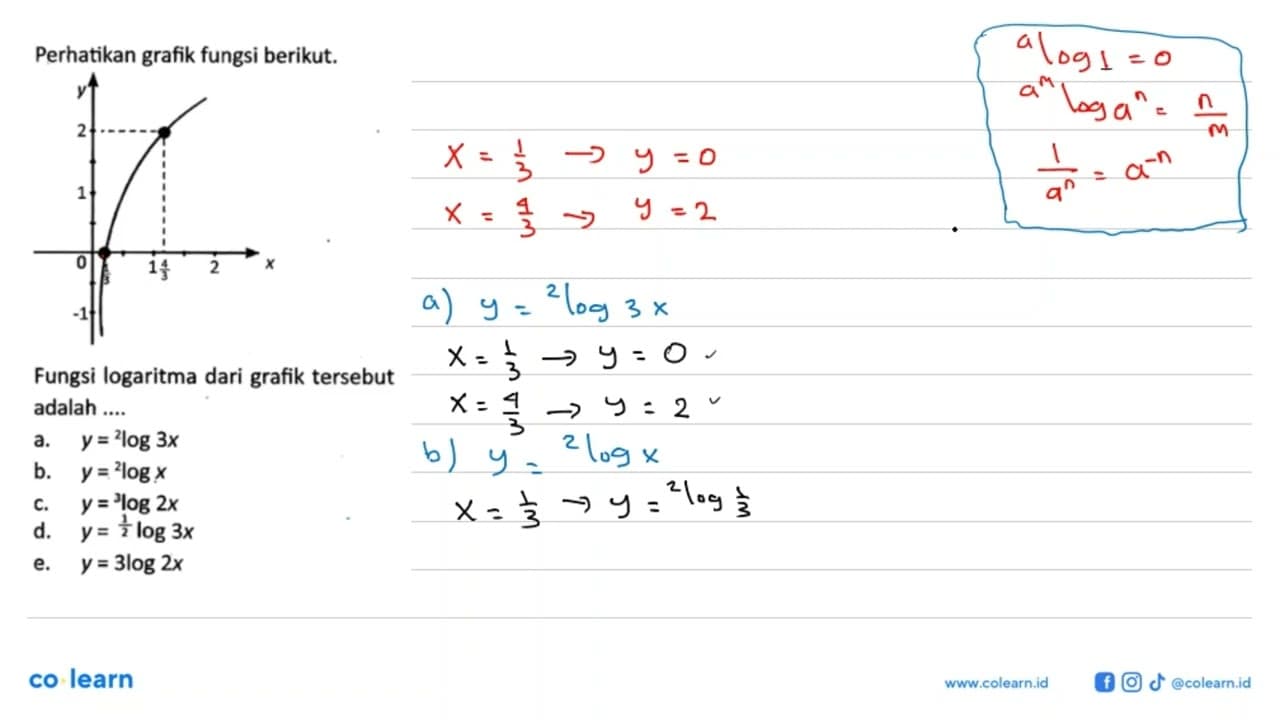 Perhatikan grafik fungsi berikut.
y
2
1
0
1/3
1 4/3
2
x
-1
Fungsi logaritma dari grafik tersebut
adalah ....
a. y = ²log 3x
b. y = ²log x
c. y = ³log 2x
d. y = ½ log 3x
e. y = 3log 2x
x = 1/3 → y = 0
x = 4/3 → y = 2
a) y = ²log 3x
x = 1/3 → y = 0 ✓
x = 4/3 → y = 2 ✓
b) y = ²log x
x = 1/3 → y = ²log 1/3
ᵃlog 1 = 0
a^m log a^n = n/m
1/a^n = a^-n
co·learn
www.colearn.id
@colearn.id